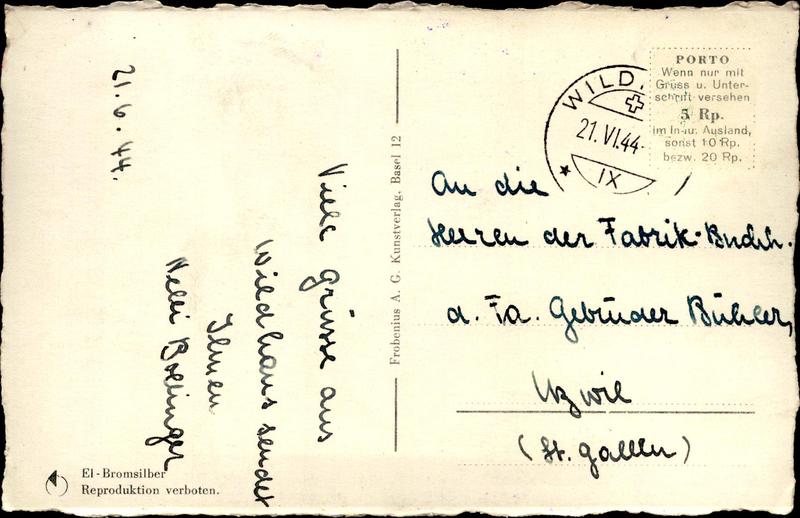 21.6.44.
Viele Grüsse aus
Wildhaus sendet
Ihnen
Nelli Bollinger
El-Bromsilber
Reproduktion verboten.
Frobenius A. G. Kunstverlag, Basel 12
WILD
21.VI.44-
IX
PORTO
Wenn nur mit
Gruss u. Unter-
schrift versehen
5 Rp.
im In- u. Ausland,
sonst 10 Rp.
bezw. 20 Rp.
An die
Herren der Fabrik-Buchh.
d. Fa. Gebrüder Bühler,
Uzwil
(St. Gallen)